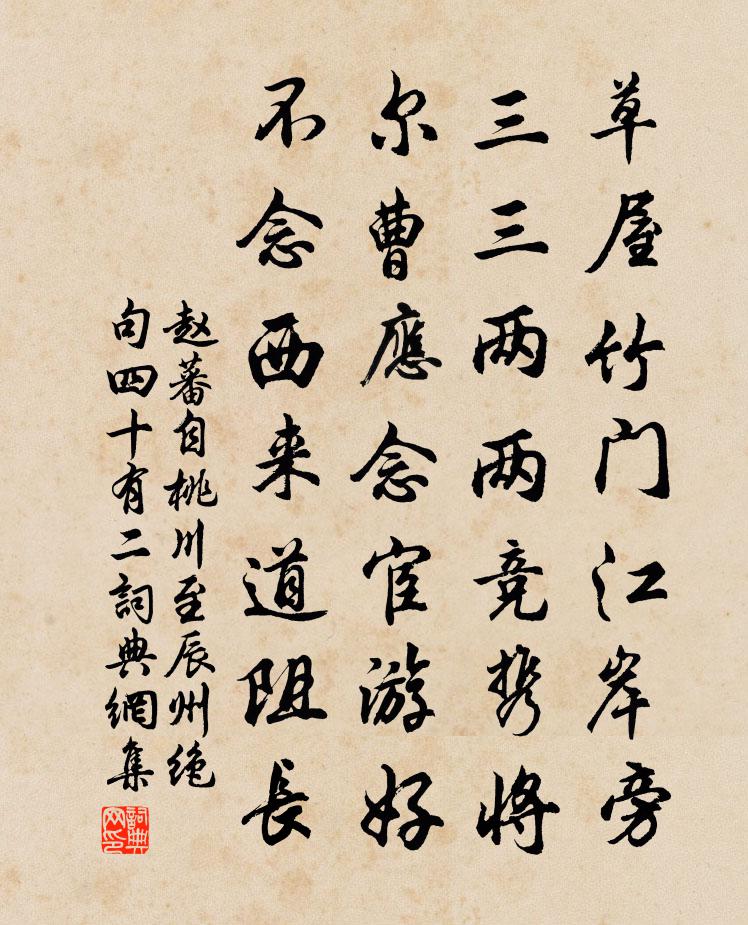 草屋竹门江岸旁
三三两两竞携将
尔曹應念宦游好
不念西来道阻長
赵蕃自桃川至辰州绝
句四十有二詞典網集
詞典网印